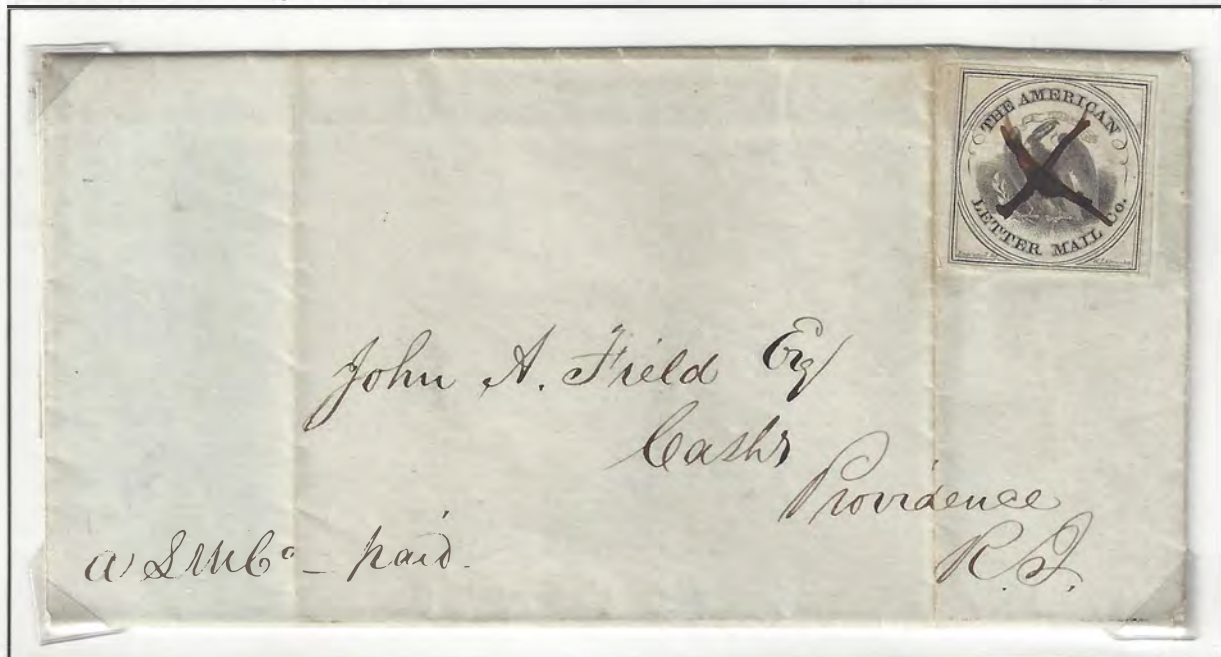 THE AMERICAN
LETTER MAIL CO.
John A. Field Esq
Cashr
Providence
R.I.
A L M Co - paid.